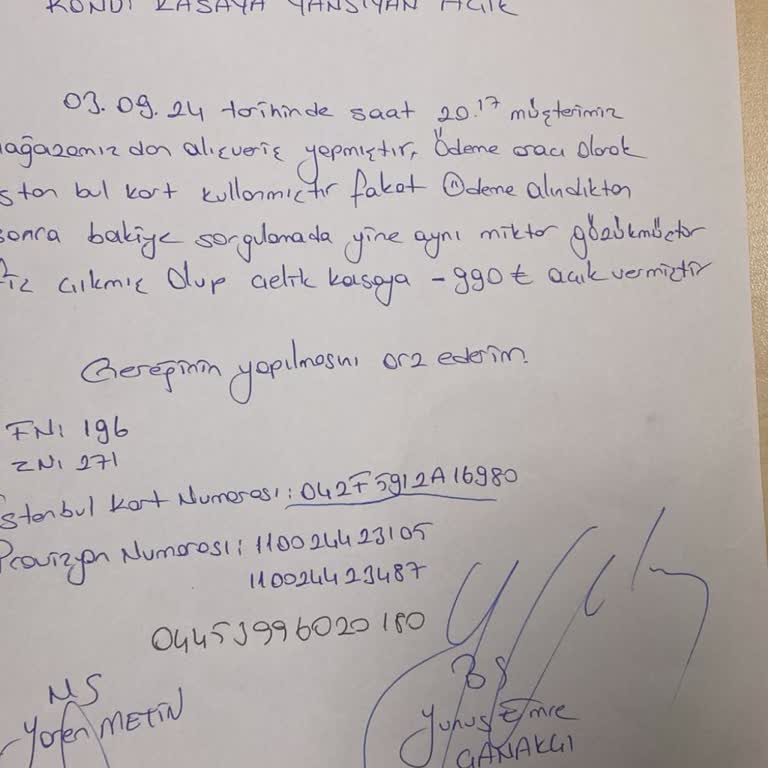 KONDİ KASAYA YANSIYAN AÇIK
03.09.24 tarihinde saat 20.17 müşterimiz
mağazamızdan alışveriş yapmıştır, Ödeme aracı olarak
stan bul kart kullanmıştır fakat Ödeme alındıktan
sonra bakiye sorgulamada yine aynı miktar gözükmüştür
çıkmış olup çelik kasaya -990 ₺ açık vermiştir
Gereğinin yapılmasını arz ederim.
FN: 196
ZN: 271
İstanbul Kart Numarası: 042F5912A16980
Provizyon Numarası: 11002442 3105
11002442 3487
04453996020180
MS
BS
METİN
Yunus Emre
ÇANAKÇI